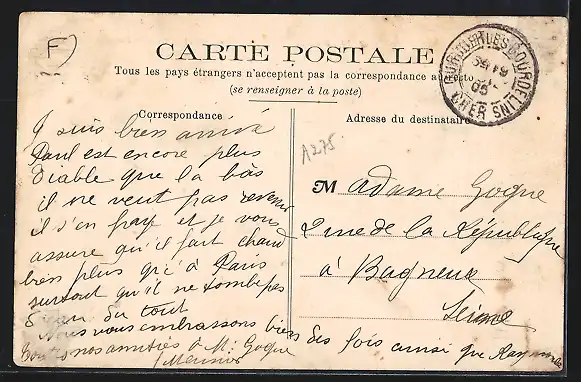 F
CARTE POSTALE
Tous les pays étrangers n'acceptent pas la correspondance au recto
(se renseigner à la poste)
Correspondance
J suis bien arrivé
Paul est encore plus
diable que la bàs
il ne veut pas revenir
il s'en paye et je vous
assure qu'il fait chaud
bien plus qu'à Paris
surtout qu'il ne tombe pas
d'eau du tout
Nous vous embrassons bien des fois ainsi que Raymonde
nos amitiés à M. Gogue
Meunier
Adresse du destinataire
A275
M adame Gogue
rue de la République
à Bagneux
Seine
CHER